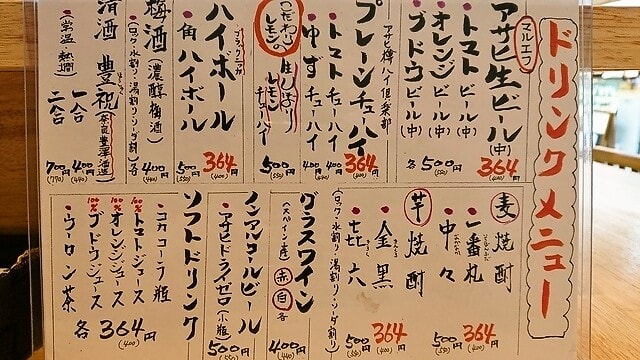 ドリンクメニュー
マルエフ
アサヒ生ビール(中) 364円(400)
・トマトビール(中)
・オレンジビール(中)
・ブドウビール(中)
各500円(550)
アサヒ樽ハイ倶楽部
プレーンチューハイ 364円(400)
・トマトチューハイ 400円(440)
・ゆずチューハイ 400円(440)
こだわりレモンの生しぼりレモンチューハイ 500円(550)
ハイボール 364円(400)
・角ハイボール 500円(550)
梅酒(濃醇梅酒) 400円(440)
(ロック・水割り・湯割り・ソーダ割) 各
清酒 豊祝(奈良豊澤酒造)
・常温・熱燗
一合 400円(440)
二合 700円(770)
麦焼酎
・一番札 364円(400)
・中々 500円(550)
芋焼酎
・金黒 364円(400)
・㐂六 500円(550)
(ロック・水割り・湯割り・ソーダ割り)
グラスワイン
(スペイン産) 赤 白 各400円(440)
ノンアルコールビール
・アサヒドライゼロ(小瓶) 500円(550)
ソフトドリンク
・コカコーラ瓶
・100%トマトジュース
・100%オレンジジュース
・100%ブドウジュース
・ウーロン茶
各364円(400)